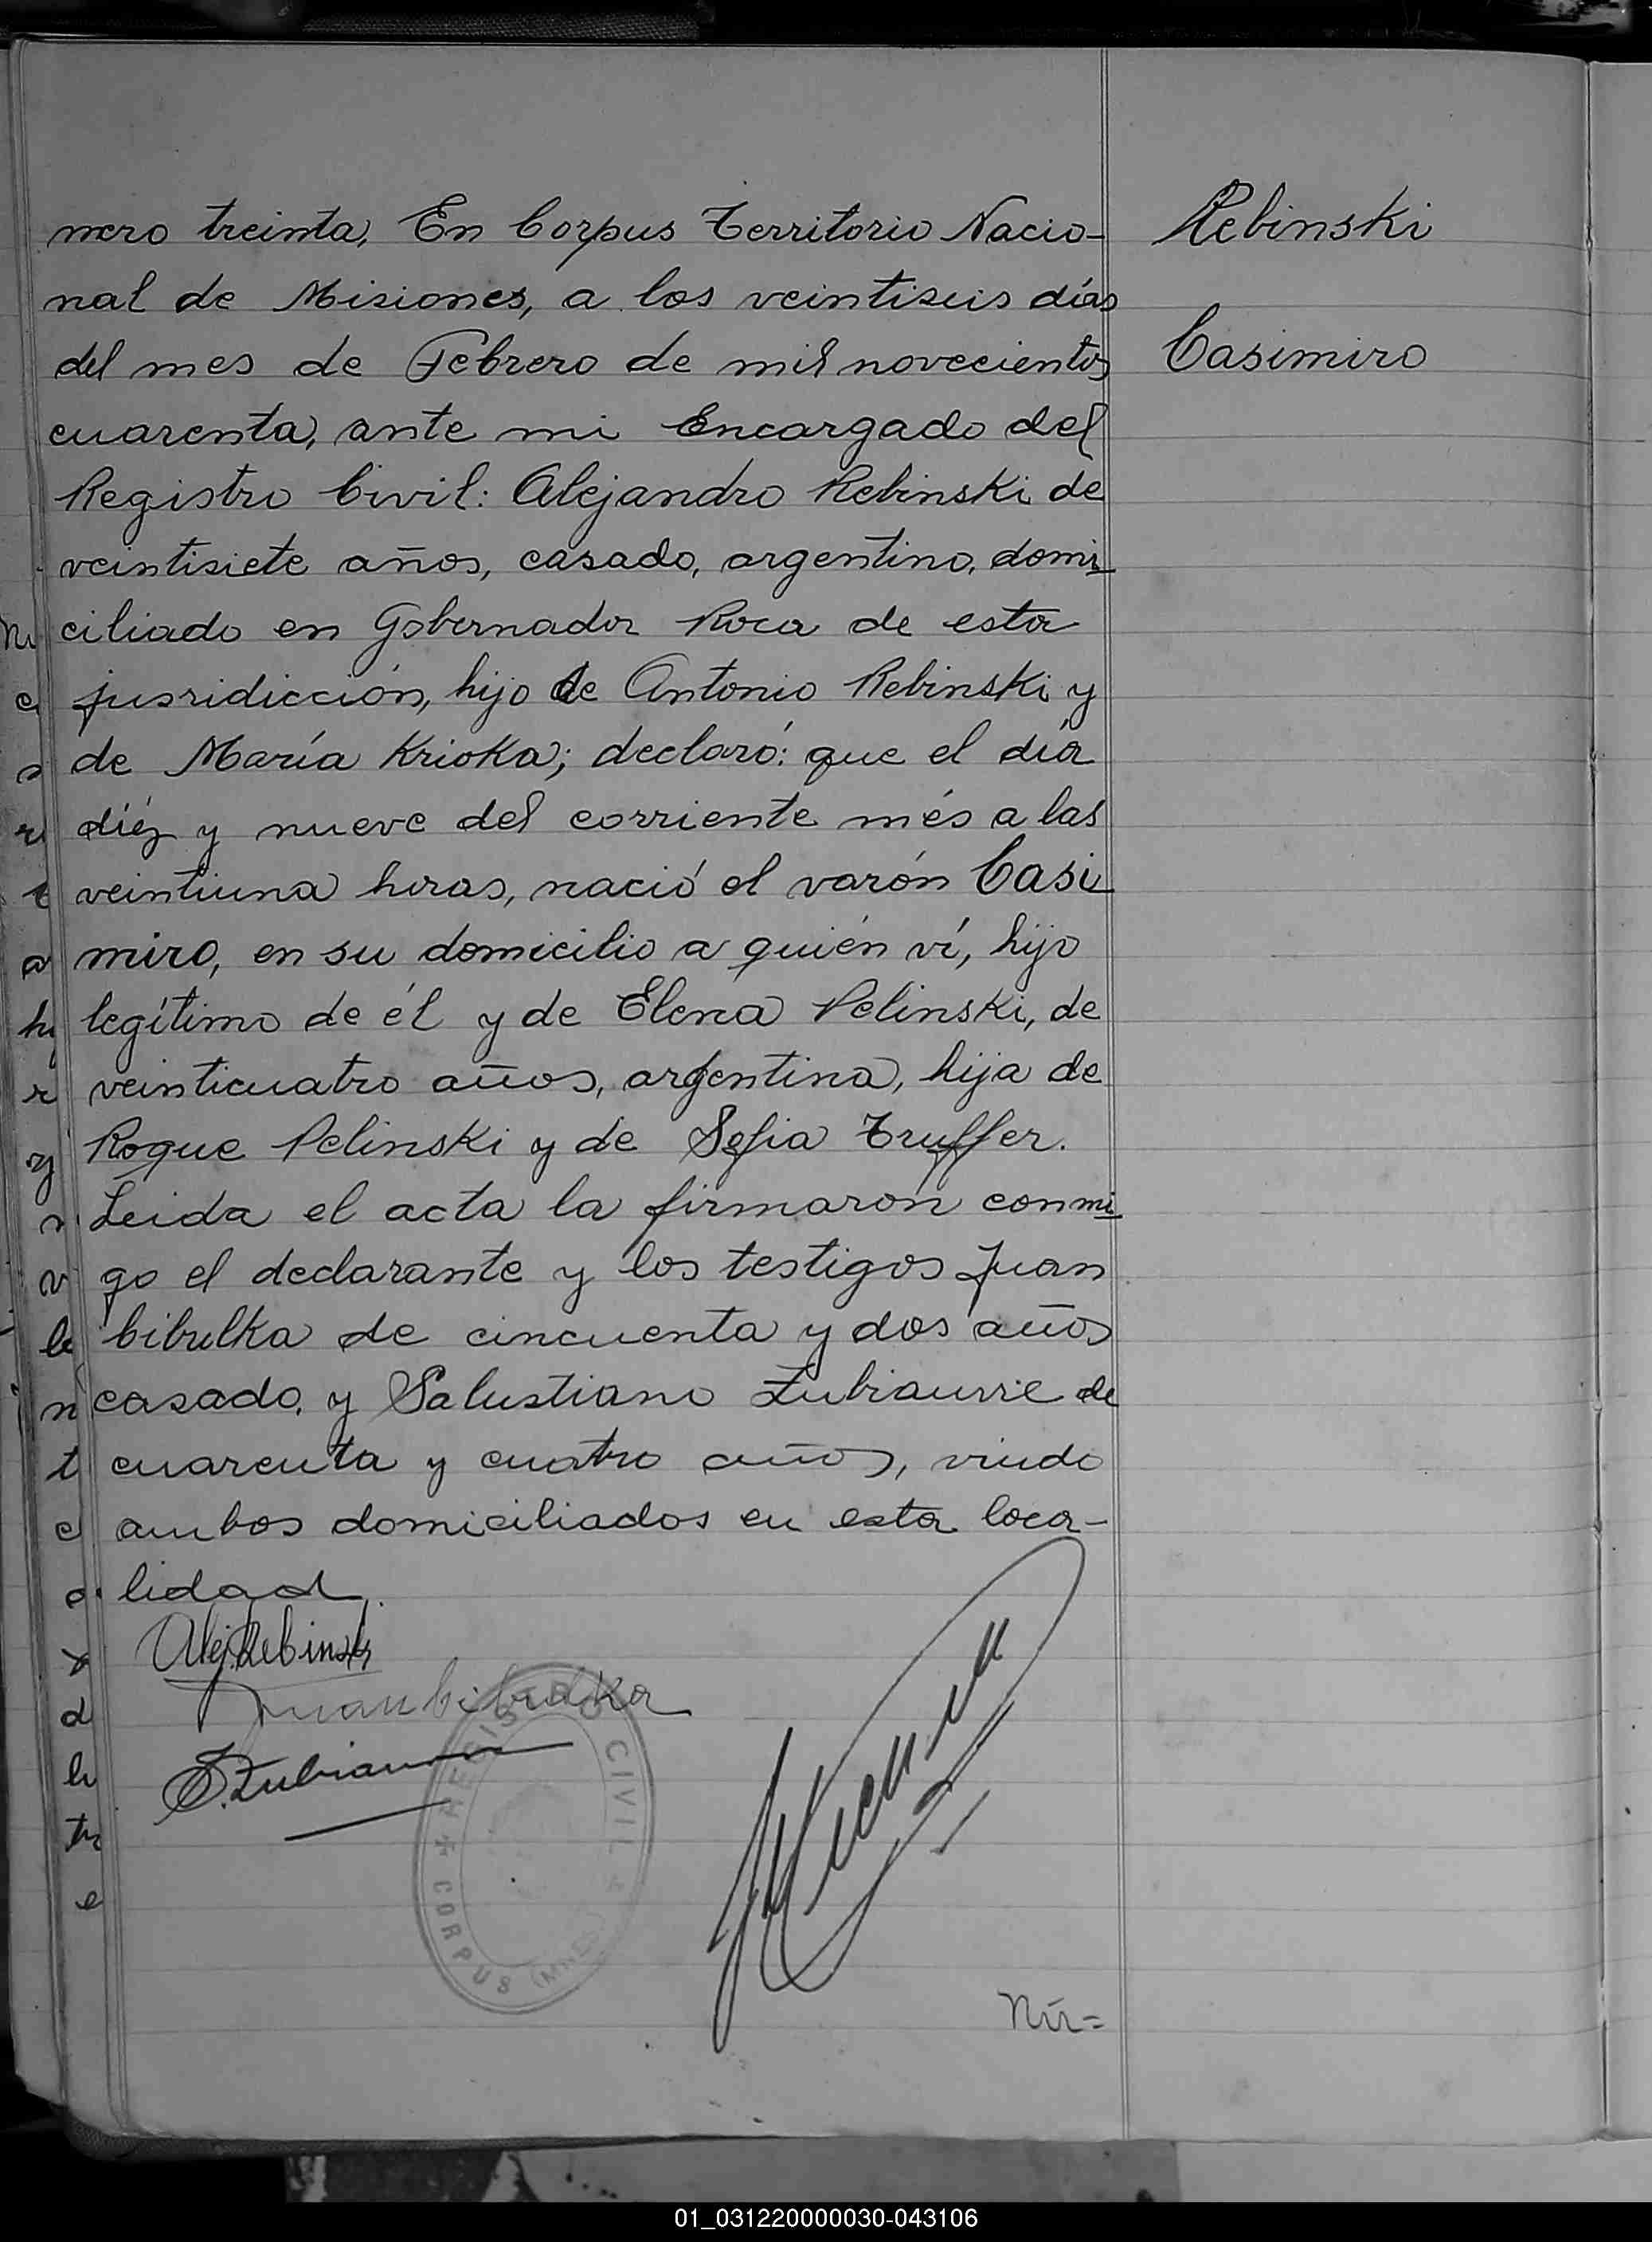 mero treinta, En Corpus Territorio Nacio-
nal de Misiones, a los veintiseis días
del mes de Febrero de mil novecientos
cuarenta, ante mi Encargado del
Registro Civil: Alejandro Rebinski de
veintisiete años, casado, argentino, domi
ciliado en Gobernador Roca de esta
jusridicción, hijo de Antonio Rebinski y
de María Krioka; declaró: que el día
diéz y nueve del corriente més a las
veintiuna horas, nació el varón Casi
miro, en su domicilio a quién ví, hijo
legítimo de él y de Elena Pelinski, de
veinticuatro años, argentina, hija de
Roque Pelinski y de Sofia Truffer.
Leida el acta la firmaron conmi
go el declarante y los testigos Juan
Cibulka de cincuenta y dos años
casado, y Salustiano Zubiaurre de
cuarenta y cuatro años, viudo
ambos domiciliados en esta loca-
lidad.
Alej. Rebinski
Juan Cibulka
S. Zubiaurre
REGISTRO CIVIL
CORPUS (MNES)
Nú=
Rebinski
Casimiro
01_031220000030-043106